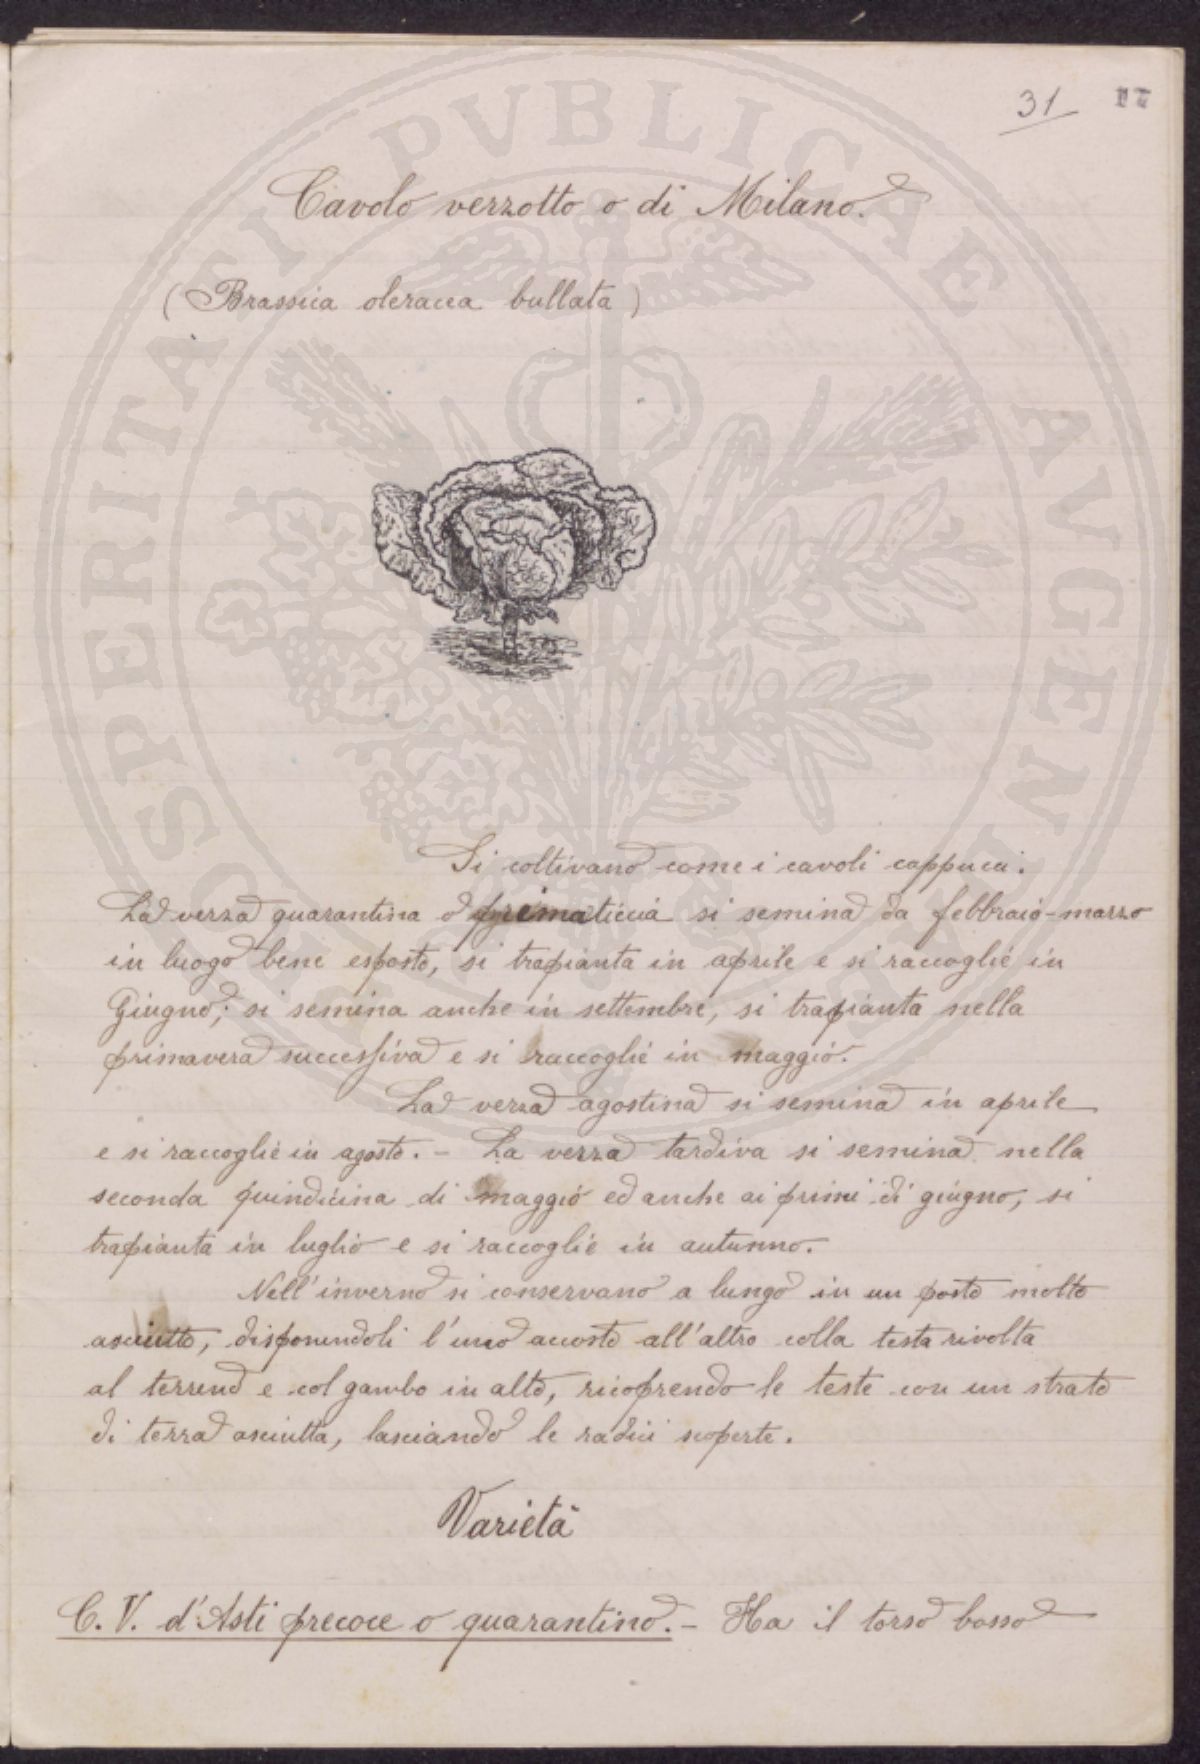 31 17
Cavolo verzotto o di Milano.
(Brassica oleracea bullata)
Si coltivano come i cavoli cappucci.
La verza quarantina o primaticcia si semina da febbraio-marzo
in luogo bene esposto, si trapianta in aprile e si raccoglie in
Giugno; si semina anche in settembre, si trapianta nella
primavera successiva e si raccoglie in maggio.
La verza agostina si semina in aprile
e si raccoglie in agosto. - La verza tardiva si semina nella
seconda quindicina di maggio ed anche ai primi di giugno, si
trapianta in luglio e si raccoglie in autunno.
Nell'inverno si conservano a lungo in un posto molto
asciutto, disponendoli l'uno accosto all'altro colla testa rivolta
al terreno e col gambo in alto, ricoprendo le teste con un strato
di terra asciutta, lasciando le radici scoperte.
Varietà
C. V. d'Asti precoce o quarantino. - Ha il torso basso
PROSPERITATI PVBLICAE AVGENDAE